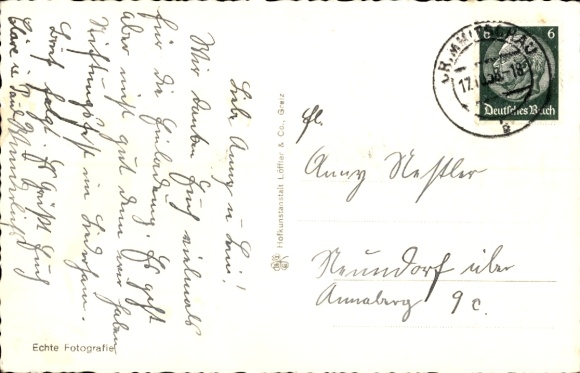 Liebe Anny u. Leni!
Wir danken Euch vielmals
für die Einladung. Es geht
aber nicht gut denn wir haben
Stiftungsfest im
Brief folgt. Es Grüßt Euch
u.
Echte Fotografie
Hofkunstanstalt Löffler & Co., Greiz
6
17. 18
Deutsches Reich
Frl.
Anny Nestler
Neundorf über
Annaberg 9c.